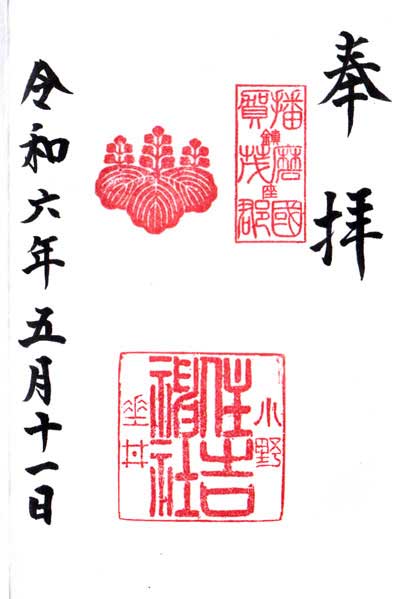 奉拝
播磨國
鎮座
賀茂郡
小野
住吉
神社
垂井
令和六年五月十一日